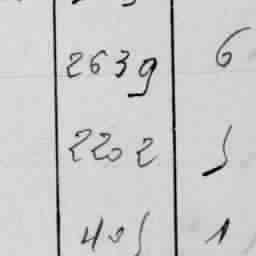 2639 6
2202 5
405 1